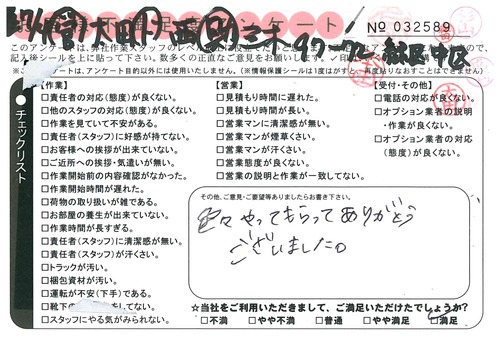 アンケート
№ 032589
このアンケートは、弊社作業スタッフのレベル
記入後シールを上に貼って下さい。数多くの正直なご意見をお願いします。
※ここに、アンケート目的以外には使用いたしません。(※情報保護シールは1度がはがすと、再度貼りなおすことはできません)
チェックリスト
【作業】
□責任者の対応(態度)が良くない。
□他のスタッフの対応(態度)が良くない。
□作業を見ていて不安がある。
□責任者(スタッフ)に好感が持てない。
□お客様への挨拶が出来ていない。
□ご近所への挨拶・気遣いが無い。
□作業開始前の内容確認がなかった。
□作業開始時間が遅れた。
□荷物の取り扱いが雑である。
□お部屋の養生が出来ていない。
□作業時間が長すぎる。
□責任者(スタッフ)に清潔感が無い。
□責任者(スタッフ)が汗くさい。
□トラックが汚い。
□梱包資材が汚い。
□運転が不安(下手)である。
□靴下の
をしてない。
□スタッフにやる気がみられない。
【営業】
□見積もり時間に遅れた。
□見積もり時間が長い。
□営業マンに清潔感が無い。
□営業マンが煙草くさい。
□営業マンが汗くさい。
□営業態度が良くない。
□営業の説明と作業が一致してない。
【受付・その他】
□電話の対応が良くない。
□オプション業者の説明
・作業が良くない。
□オプション業者の対応
(態度)が良くない。
その他、ご意見・ご要望等ありましたらお書き下さい。
色々やってもらってありがとう
ございました。
☆当社をご利用いただきまして、ご満足いただけたでしょうか?
□不満 □やや不満 □普通 □やや満足 □満足